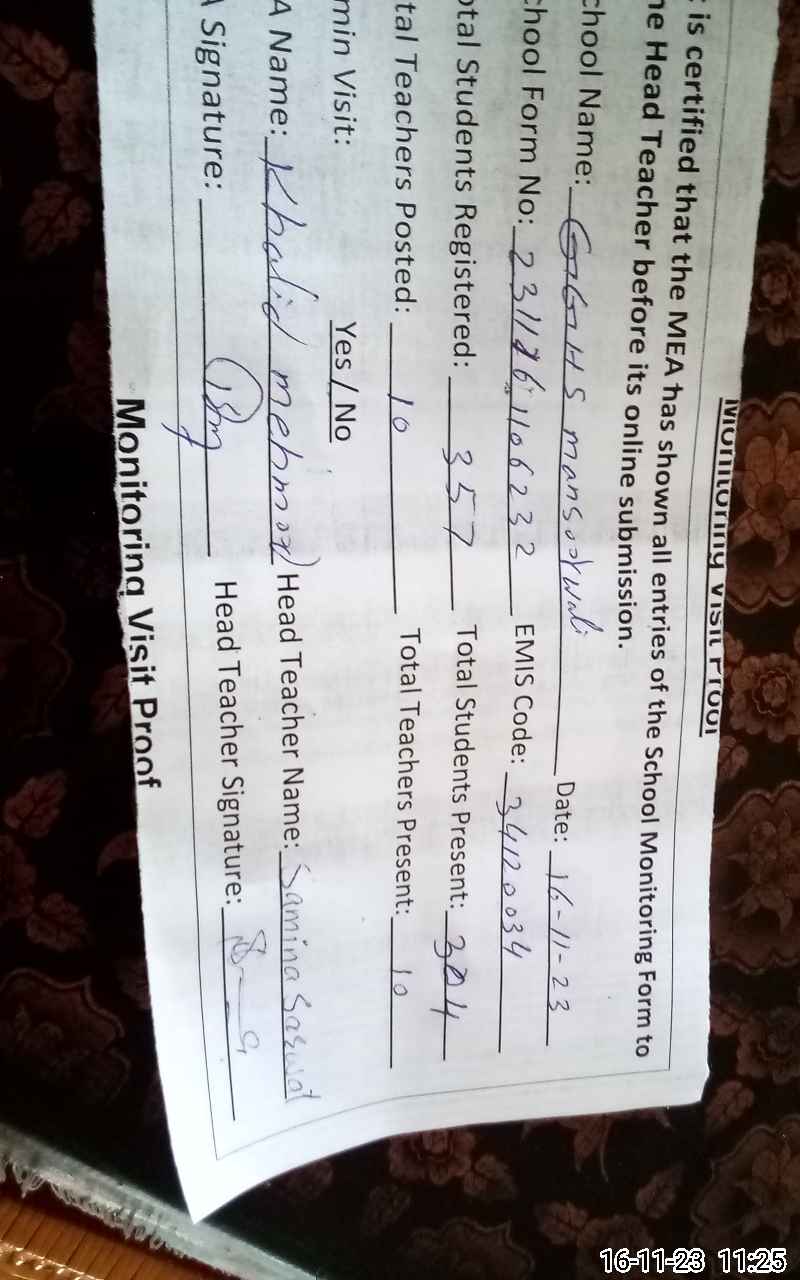 Monitoring Visit Proof
is certified that the MEA has shown all entries of the School Monitoring Form to
he Head Teacher before its online submission.
chool Name: GGHS mansoorwali Date: 16-11-23
chool Form No: 2311161106232 EMIS Code: 34120034
otal Students Registered: 357 Total Students Present: 304
tal Teachers Posted: 10 Total Teachers Present: 10
min Visit: Yes / No
A Name: Khalid mehmood Head Teacher Name: Samina Sarwat
A Signature: Head Teacher Signature:
Monitoring Visit Proof
16-11-23 11:25